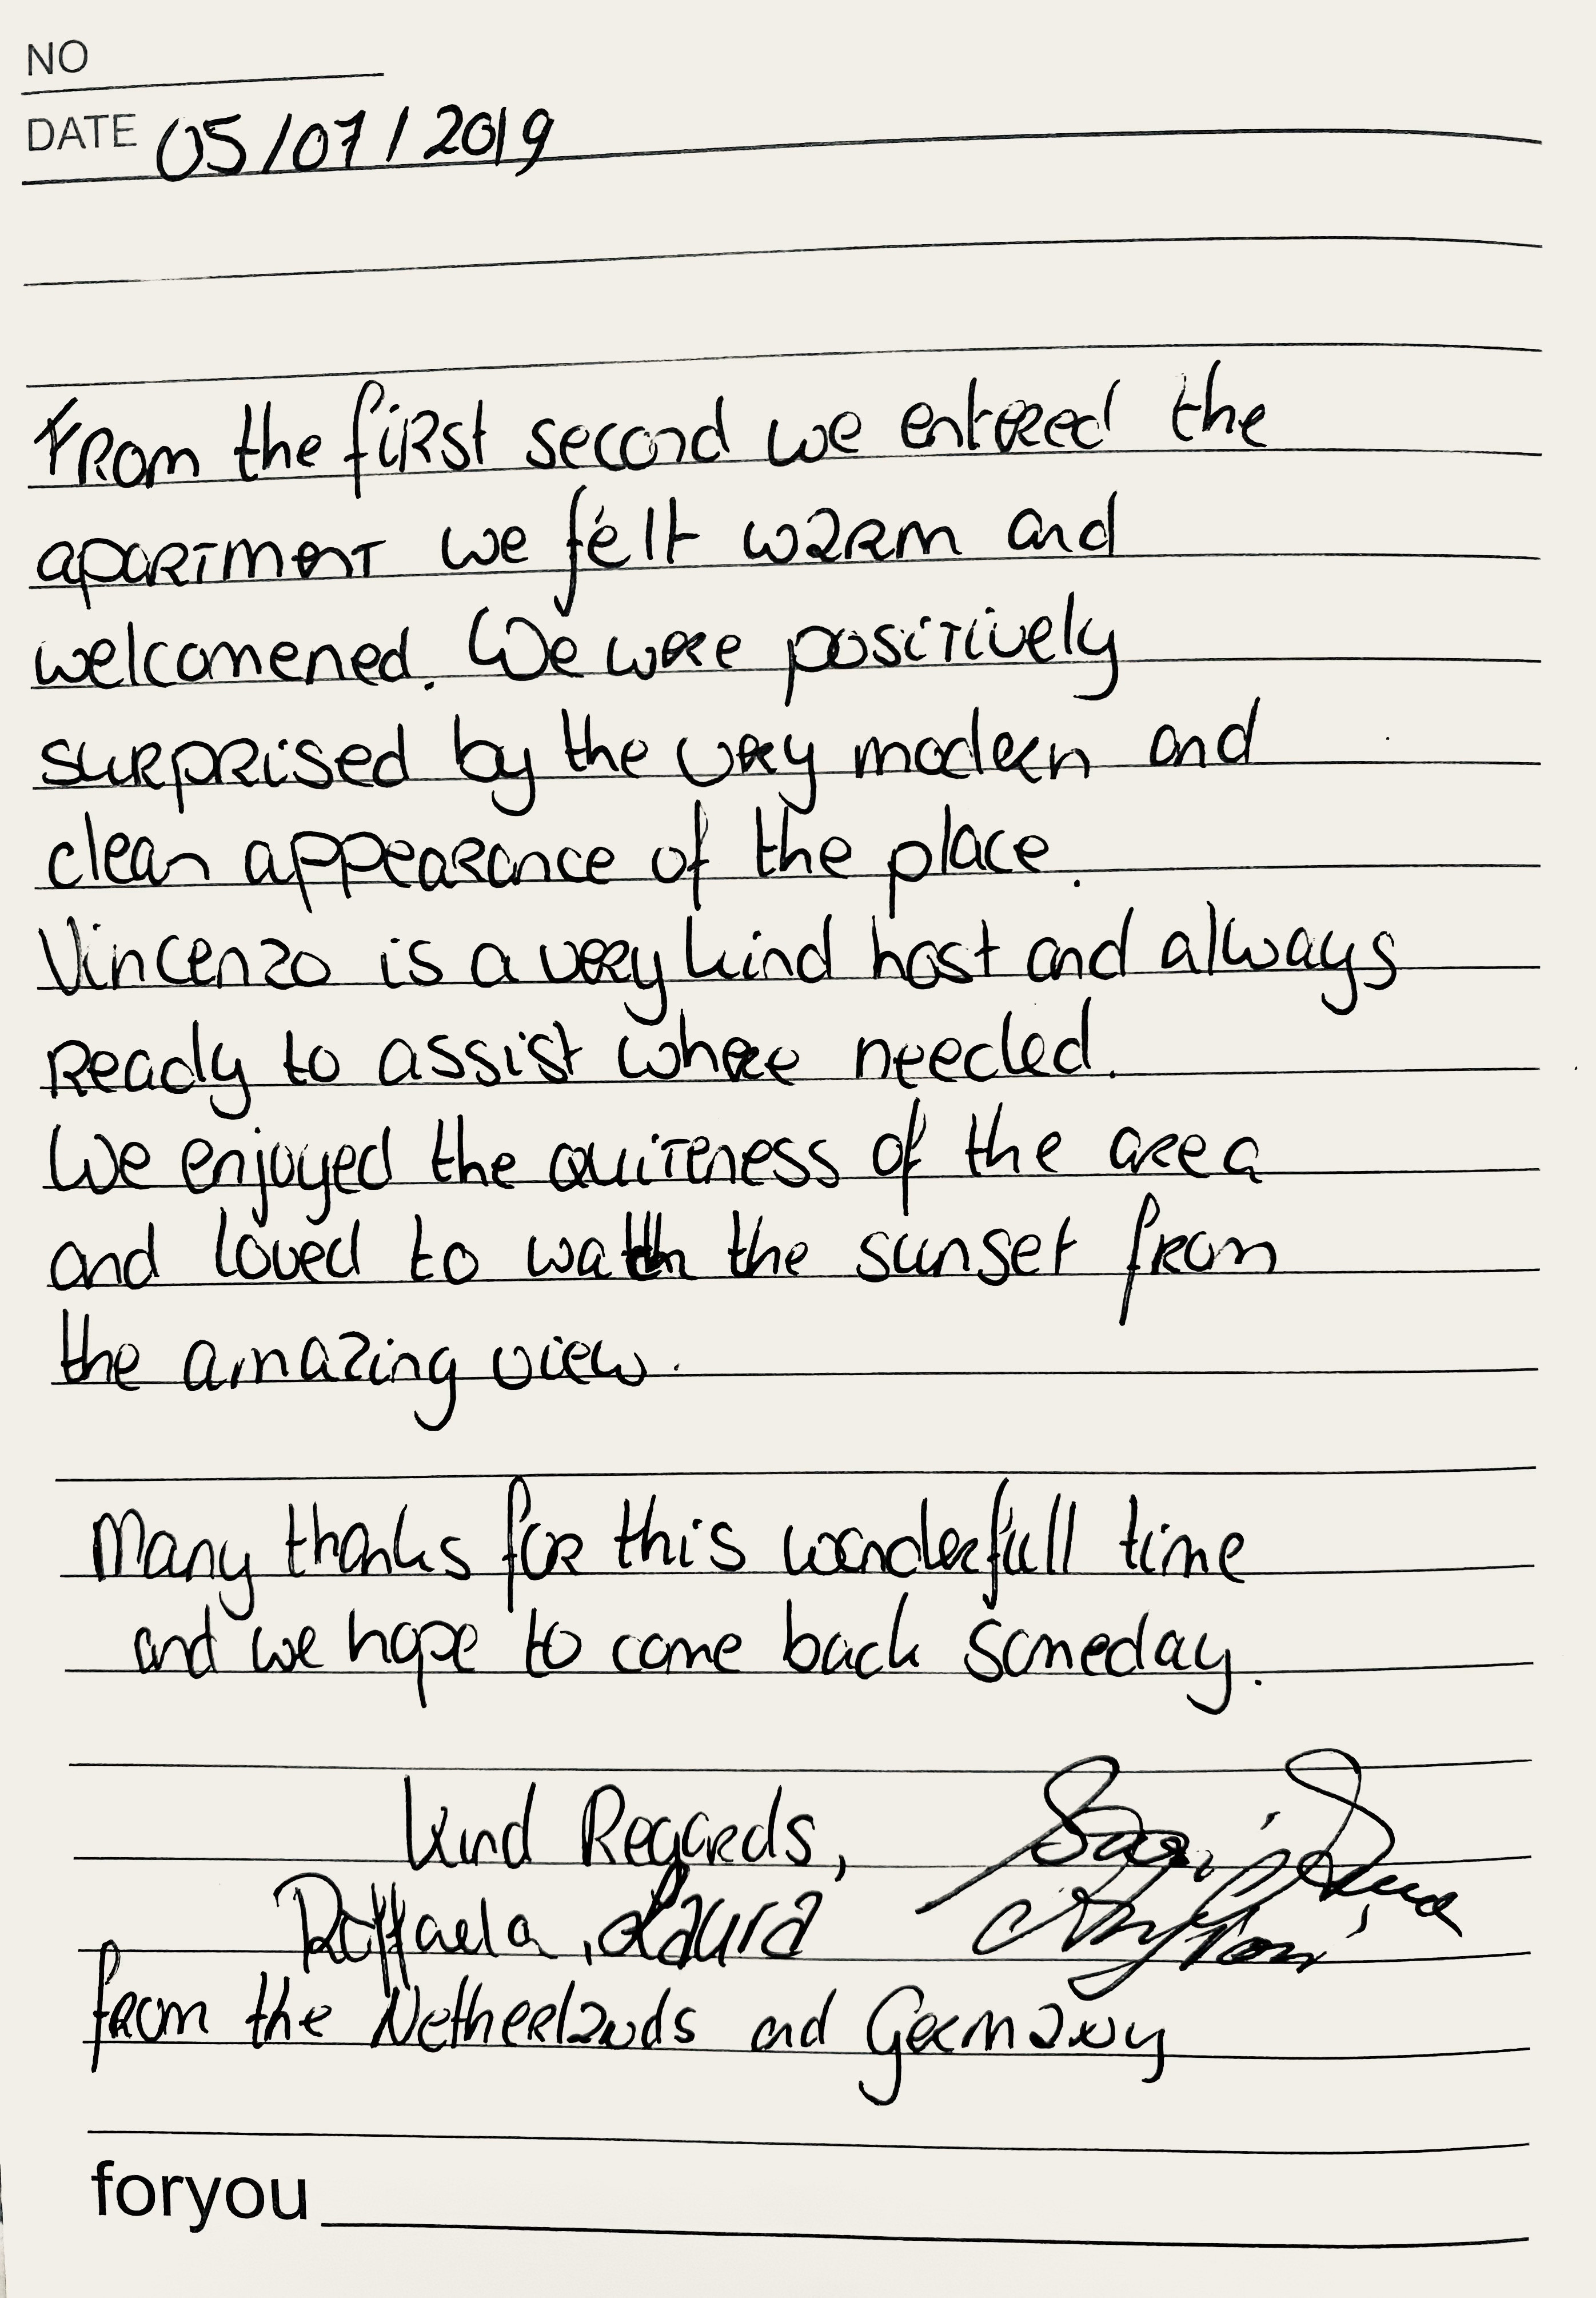 NO
DATE 05/07/2019
From the first second we entered the
apartment we felt warm and
welcomened. We were positively
surprised by the very modern and
clean appearance of the place.
Vincenzo is a very kind host and always
ready to assist where needed.
We enjoyed the quiteness of the area
and loved to watch the sunset from
the amazing view.
Many thanks for this wonderfull time
and we hope to come back someday.
Kind Regards,
Raffaela, Laura
from the Netherlands and Germany
foryou